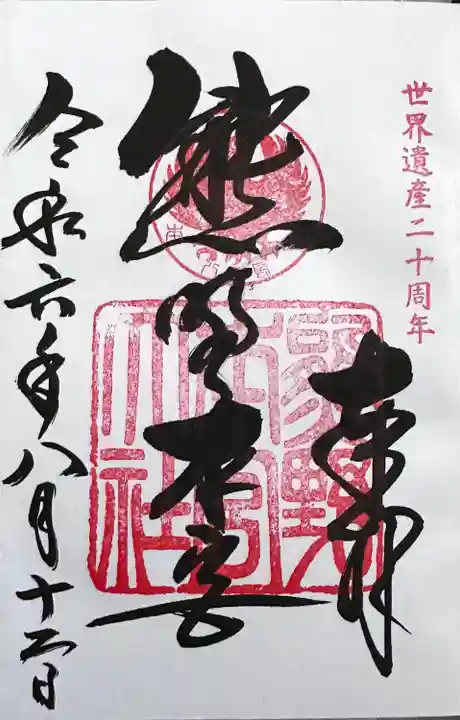 世界遺産二十周年
奉拝
熊野本宮
熊野本宮大社
令和六年八月十二日